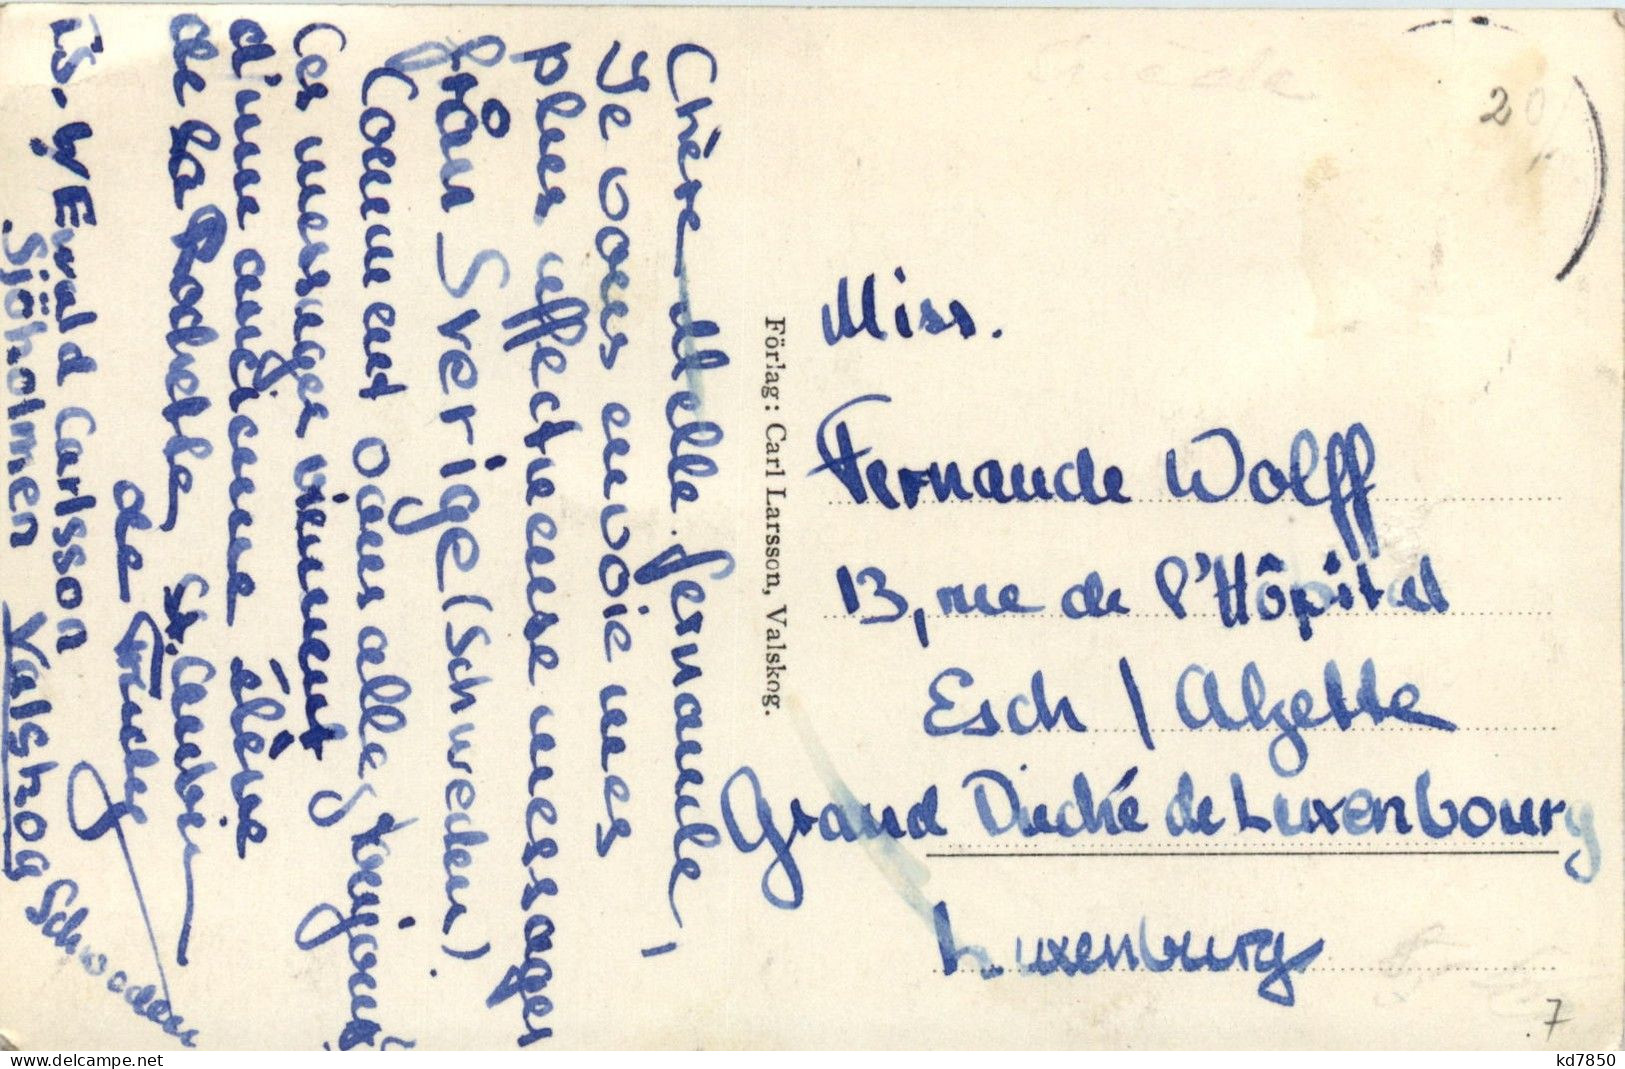 Chère Melle. Fernande,
Je vous envoie mes
plus affectueuse messages
från Sverige (Schweden).
Comment vas allez toujours
Ces messages viennent
d'une ancienne élève
de la Rochette
de Trudy
Ewald Carlsson
Sjöholmen Valskog Schweden
Förlag: Carl Larsson, Valskog.
20
Miss.
Fernande Wolff
13, rue de l'Hôpital
Esch / Alzette
Grand Duché de Luxenbourg
Luxenburg
7
delcampe.net
kd7850